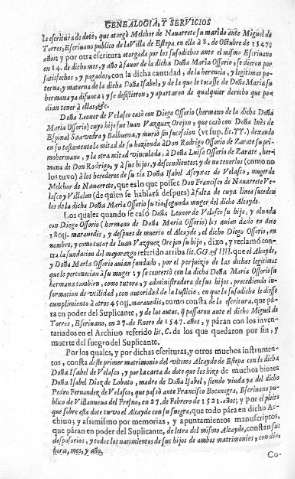 GENEALOGIA, Y SERVICIOS
la escritura de dote, que otorgò Melchor de Nauarrete su marido ante Miguel de
Torres, Escriuano publico de la Villa de Estepa, en ella à 2. de Octubre de 1547.
años; y por otra escritura otorgada por los susodichos ante el mismo Escriuano
en 24. de dicho mes, y año à favor de la dicha Doña Maria Osorio, se dieron por
satisfechos, y pagados, con la dicha cantidad, de la herencia, y legitimas pa-
terna, y materna de la dicha Doña Isabel, y de lo que le tocasse de Doña Maria su
hermana ya difunta, y se desistieron, y apartaron de qualquier derecho que pu-
dian tener à
Doña Leonor de Velasco casò con Diego Ossorio (hermano de la dicha Doña
Maria Ossorio) cuyo hijo fue Iuan Vazquez Orejon, que casò con Doña Inès de
Espinal Saavedra y Balbuena, y murió sin succession (vt sup. §. YY.) dexando
en su testamento la mitad de su hazienda à Don Rodrigo Ossorio de Zarate su pri-
mohermano, y la otra mitad vinculada, à Doña Luisa Ossorio de Zarate, her-
mana de Don Rodrigo, y à sus hijos, y descendientes, y de no tenerlos (como no
los tuvo) à los herederos de su tia Doña Isabel Aseytes de Velasco, muger de
Melchor de Nauarrete, que es lo que possee Don Francisco de Nauarrete Ve-
lasco y Villalon (de quien se hablarà despues) à falta de cuya linea
los de la dicha Doña Maria Ossorio su tia segunda muger del dicho Alcayde.
Los quales quando se casò Doña Leonor de Velasco su hija, y alnada
con Diego Ossorio (hermano de Doña Maria Ossorio) les avian dado en dote
180y. maravedis, y despues de muerto el Alcayde, el dicho Diego Ossorio, en
nombre, y como tutor de Iuan Vazquez Orejon su hijo, dixo, y reclamó con-
tra la fundacion del mayorazgo referido arriba lit. que el Alcayde,
y Doña Maria Ossorio avian fundado, por el perjuizio de las dichas legitimas
que le pertenecian à su muger; y se concertò con la dicha Doña Maria Ossorio su
hermana tambien, como tutora y administradora de sus hijos, precediendo in-
formacion de vtilidad, con autoridad de la Iusticia, en que la susodicha le diesse
cumplimiento à otros 405y. maravedis, como consta de la escritura, que pà-
ra en poder del Suplicante, y de los autos, que passaron ante el dicho Miguel de
Torres, Escriuano, en 27. de Enero de 1547. años, y pàran con los inven-
tariados en el Archivo referido lit. C. de los que quedaron por fin, y
muerte del suegro del Suplicante.
Por los quales, y por dichas escrituras, y otros muchos instrumen-
tos, consta de el primer matrimonio del mismo Alcayde de Estepa con la dicha
Doña Isabel de Velasco, y por la carta de dote que les hizo de muchos bienes
Doña Isabel Diaz de Lobato, madre de Doña Isabel, siendo viuda ya del dicho
Pedro Fernandez de Velasco, que passò ante Francisco Escriuano pu-
blico de Villanueva del Fresno, en 27. de Febrero de 1521. años; y por el pleito
que sobre esta dote tuvo el Alcayde con su suegra, que todo pàra en dicho Ar-
chivo; y assimismo por memorias, y apuntamientos manuscriptos,
que pàran en poder del Suplicante, de letra del mismo Alcayde, constan sus
desposorios, y todos los nacimientos de sus hijos de ambos matrimonios, con dia,
hora, mes, y año.
Co-